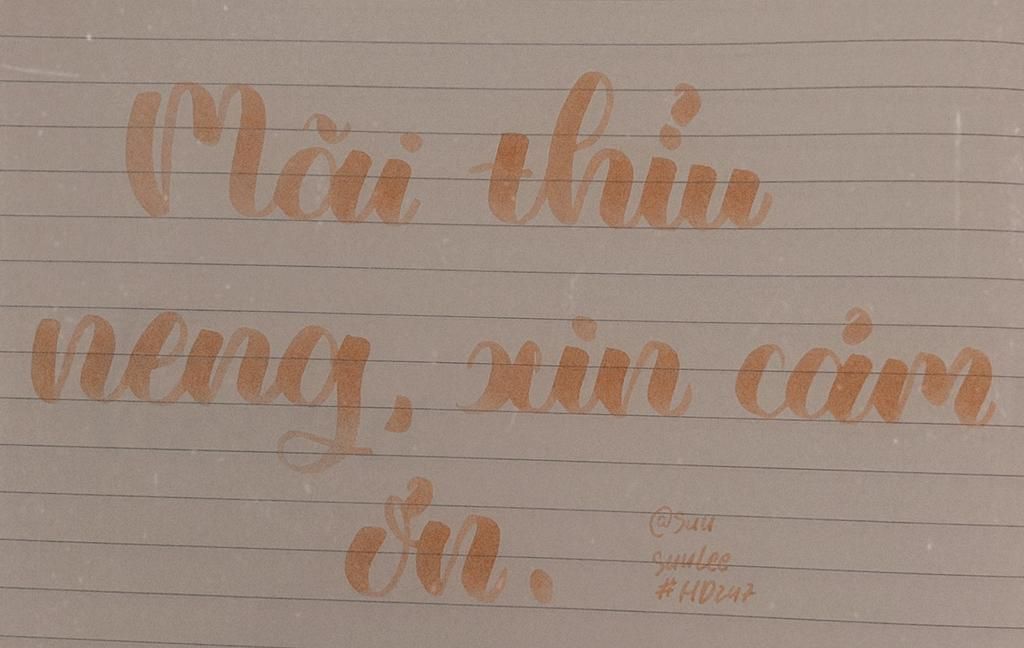 Mãi thỉu
neng, xin cảm
ơn.
@suu
suulee
#HD247